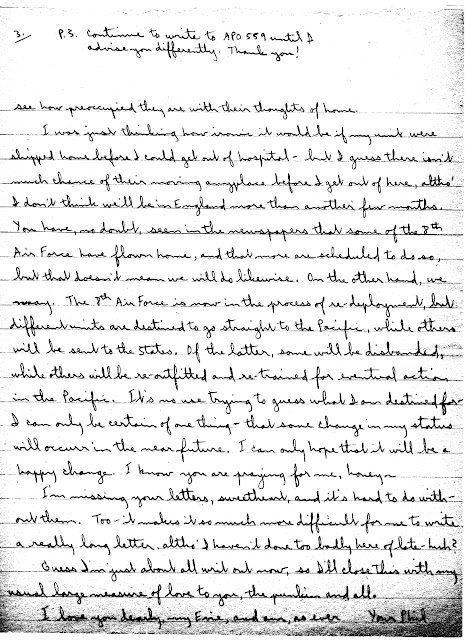 3. P.S. Continue to write to APO 559 until I
advise you differently. Thank you!
see how preoccupied they are with their thoughts of home.
I was just thinking how ironic it would be if my unit were
shipped home before I could get out of hospital - but I guess there isn't
much chance of their moving anyplace before I get out of here, altho'
I don't think we'll be in England more than another few months.
You have, no doubt, seen in the newspapers that some of the 8th
Air Force have flown home, and that more are scheduled to do so,
but that doesn't mean we will do likewise. On the other hand, we
may. The 8th Air Force is now in the process of re-deployment, but
different units are destined to go straight to the Pacific, while others
will be sent to the States. Of the latter, some will be disbanded,
while others will be re-outfitted and re-trained for eventual action
in the Pacific. It's no use trying to guess what I am destined for
I can only be certain of one thing - that some change in my status
will occur in the near future. I can only hope that it will be a
happy change. I know you are praying for me, honey~
I'm missing your letters, sweetheart, and it's hard to do with-
out them. Too - it makes it so much more difficult for me to write
a really long letter. altho' I haven't done too badly here of late - huh?
Guess I'm just about all writ out now, so I'll close this with my
usual large measure of love to you, the punkin and all.
I love you dearly, my Evie, and am, as ever Your Phil